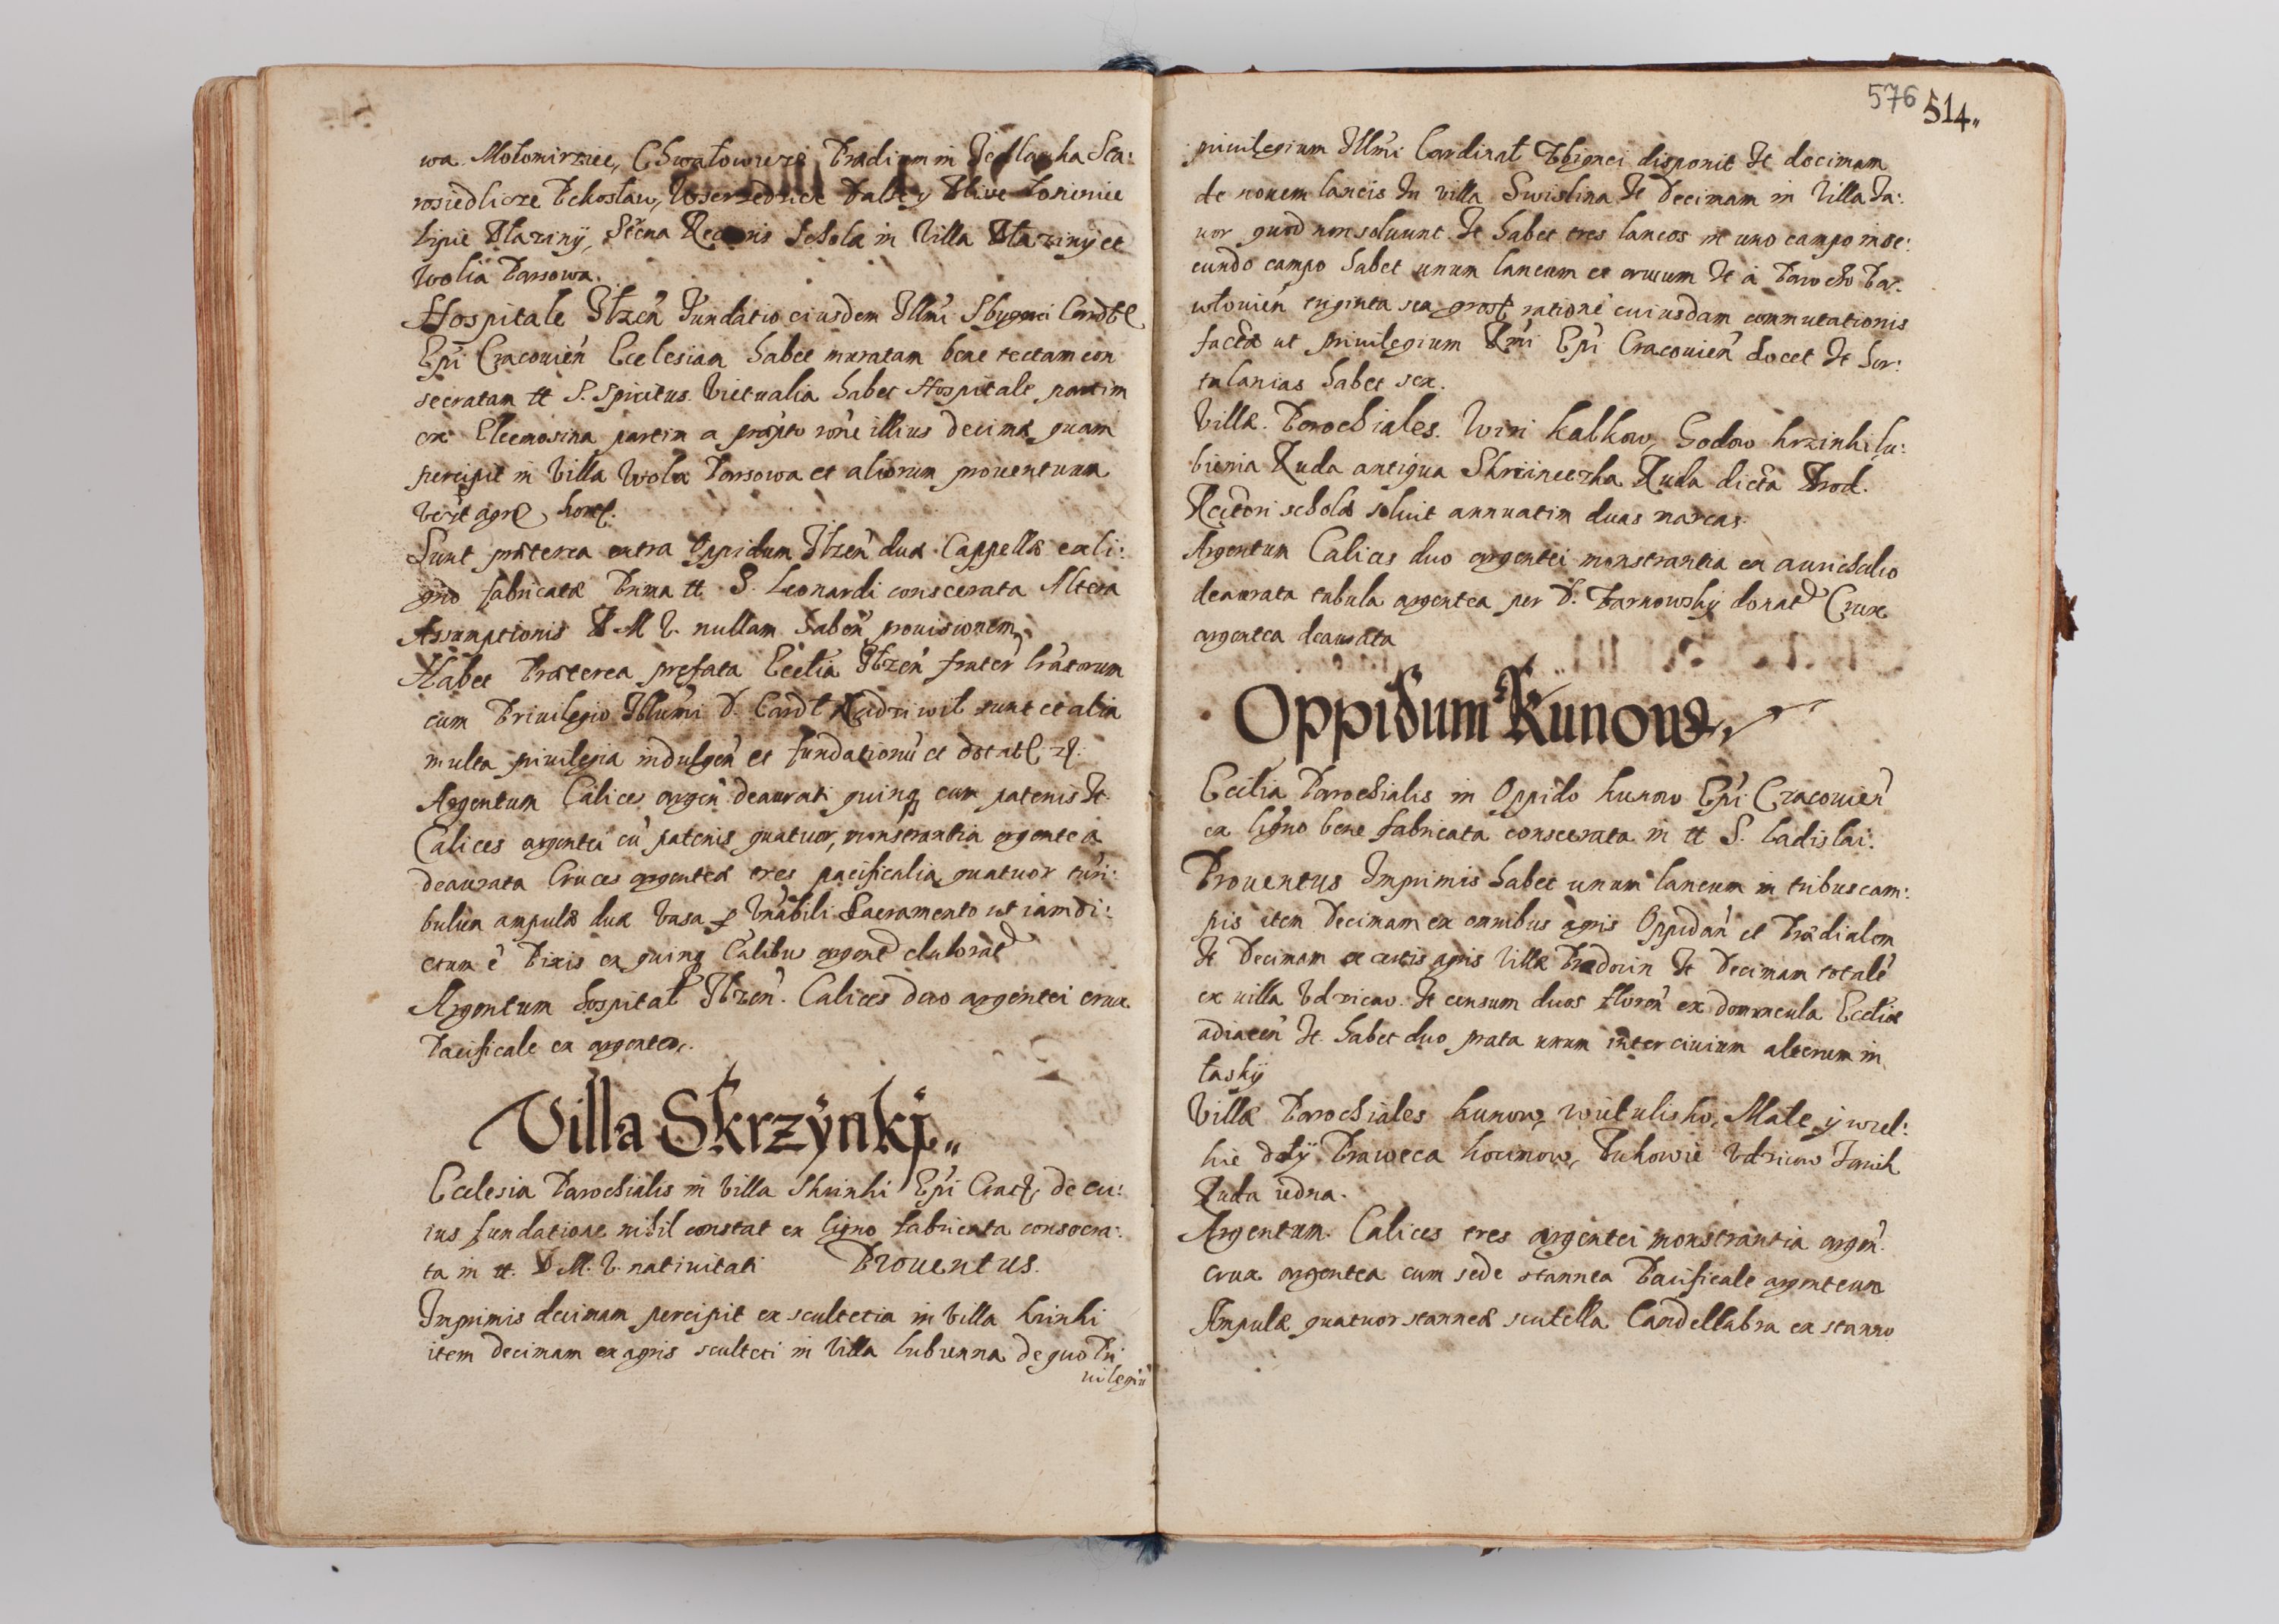 wa. Mołomirzice, CHwałowicze Prædium in Jedlanka Sta:
rosiedlicze Pekosław, Dalsey Bliże Koninie
Lipie Błaziny, Schola in Villa Błaziny et
Wolia Parsowa.
Hospitale Ilzen̄ Fundatio eiusdem Illm̄i Sbygnei Cardtl
Ep̄i Cracouien̄ Ecclesiam habet muratam bene tectam con
secratam tt S. Spiritus. Victualia habet Hospitale partim
ex Eleemosina partim a præpto rōne illius decimæ quam
percipit in Villa Wola Parsowa et aliorum prouentuum
agrɫ hortɫ.
Sunt præterea extra Oppidum Ilzen̄ duæ Cappellæ ex li:
gno fabricatæ Prima tt S. Leonardi consecrata Altera
Assumptionis B M V. nullam haben̄ prouisionem
Habet Præterea prefata Ecctia Ilzen̄ frater̄ lrātorum
cum Priuilegio Illum̄i D. Cardl Radziwil sunt et alia
multa priuilegia indulgen̄ et fundationū et dotatɫ
Argentum Calices argen̄ deaurati quinq cum patenis It
Calices argentei cū patenis quatuor, monstrantia argentea
deaurata Cruces argenteæ tres pacificalia quatuor turi:
bulum ampulæ duæ Vasa p Vnābili Sacramento ut iam di:
ctum ē Pixis ex quinq Calibu argent elaborat
Argentum hospital Ilzen̄. Calices duo argentei crux
Pacificale ex argento.
Villa Skrzÿnkÿ
Ecclesia Parochialis in Villa Skrinki Ep̄i Crac, de cu:
ius fundatione nihil constat ex ligno fabricata consecra:
ta in tt. B. M. V. natiuitati Prouentus.
Imprimis decimam percipit ex scultetia in Villa Krinki
item Decimam ex agris sculteti in Villa Lubienna de quo Pri
uilegiū
576 514
priuilegium Illm̄i Cardinal Sbignei disponit It decimam
de nouem laneis In villa Swislina It Decimam in Villa Ja:
wor quod non soluunt. It habet tres laneos in uno campo in se:
cundo campo habet unum laneum et It a Parocho Pa:
włouien̄ triginta sex gross ratione cuiusdam commutationis
factæ ut priuilegium Rm̄i Ep̄i Cracouien̄ docet It hor:
tulanias habet sex.
Villæ Parochiales. Wiri Kalkow, Godow Krzinki Lu:
bienia Ruda antiqua Skrinieczka Ruda dicta Brod.
Rectori scholæ soluit annuatim duas marcas.
Argentum Calices duo argentei monstrantia ex aurichalco
deaurata tabula argentea per D. Tarnowskij donat Crux
argentea deaurata
Oppidum Kunow
Ecclia Parochialis in Oppido Kunow Ep̄i Cracouien̄
ex ligno bene fabricata consecrata in tt S. Ladislai.
Prouentus Imprimis habet unum laneum in tribus cam:
pis item Decimam ex omnibus agris Oppidan̄ et Prædialem
It Decimam ex certis agris Villæ It Decimam totalē
ex uilla Vdzicow. It censum duos floren̄ ex domuncula Eccliæ
adiacen̄ It. habet duo prata unum inter ciuium alterum in
łaskÿ
Villæ Parochiales Kunow, witulisko, Małe ÿ wiel:
kie dołÿ Praweca Kocinow, Bukowie Vdzicow Janik
Ruda iedna.
Argentum. Calices tres argentei monstrantia argen̄.
crux argentea cum sede stannea Pacificale argenteum
Ampulæ quatuor stanneæ scutella Candellabra ex stanno